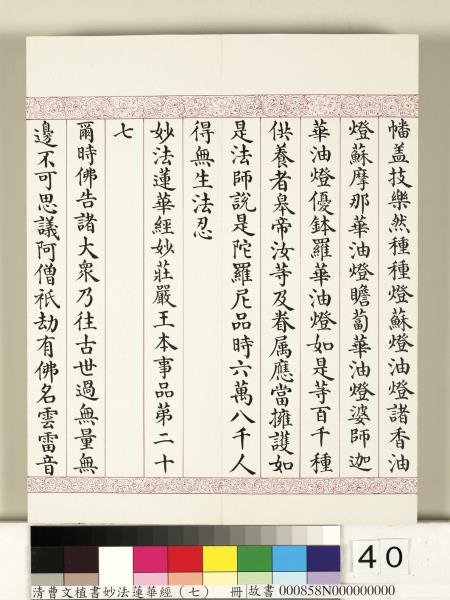 幡盖技樂然種種燈蘇燈油燈諸香油
燈蘇摩那華油燈瞻蔔華油燈婆師迦
華油燈優鉢羅華油燈如是等百千種
供養者皋帝汝等及眷属應當擁護如
是法師說是陀羅尼品時六萬八千人
得無生法忍
妙法蓮華經妙莊嚴王本事品第二十
七
爾時佛告諸大衆乃往古世過無量無
邊不可思議阿僧祇劫有佛名雲雷音
40
清曹文植書妙法蓮華經（七） 冊 故書 000858N000000000